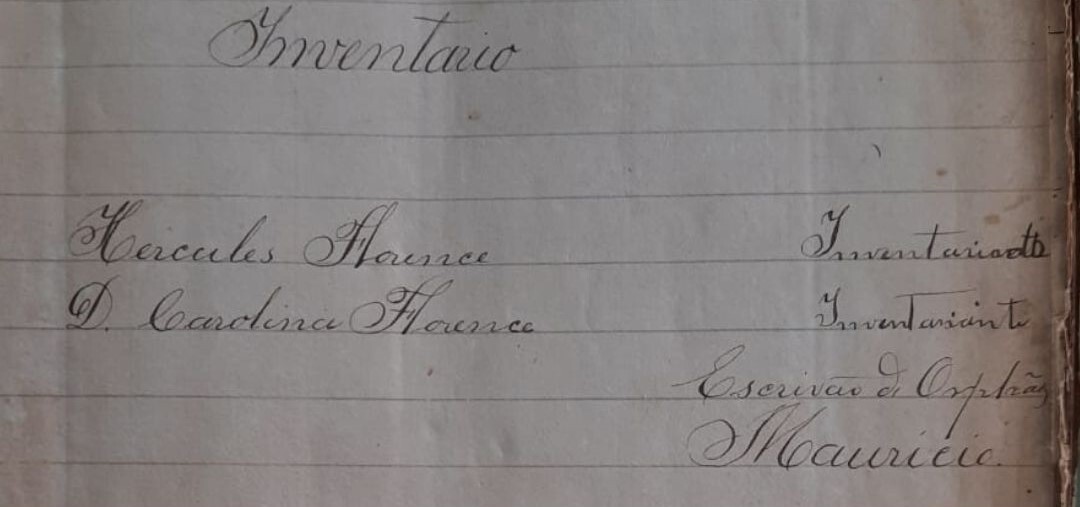 Inventario
Hercules Florence Inventariado
D. Carolina Florence Inventariante
Escrivão de Orphãos
Mauricio.